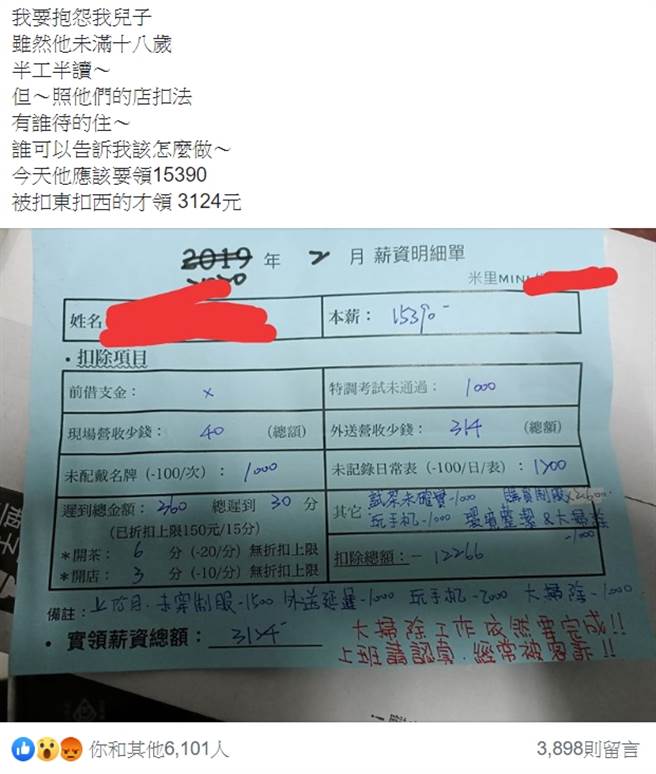 我要抱怨我兒子
雖然他未滿十八歲
半工半讀～
但～照他們的店扣法
有誰待的住～
誰可以告訴我該怎麼做～
今天他應該要領15390
被扣東扣西的才領 3124元
2019 年 2 月 薪資明細單
2020
米里MINI
姓名
本薪： 15390-
·扣除項目
前借支金： x
特調考試未通過： 1000
現場營收少錢： 40 (總額)
外送營收少錢： 314 (總額)
未配戴名牌 (-100/次)： 1000
未記錄日常表 (-100/日/表)： 1200
遲到總金額： 360 總遲到 30 分
(已折扣上限150元/15分)
＊開茶： 6 分 (-20/分) 無折扣上限
＊開店： 3 分 (-10/分) 無折扣上限
其它： 試菜未確實-1000 購買制服
玩手机-1000 環境整潔&大掃除
-1000
扣除總額：- 12266
備註：上個月.未穿制服-1500 外送延遲-1000 玩手机-2000 大掃除-1000
· 實領薪資總額： 3124-
大掃除工作依然要完成!!
上班請認真.經常被客訴!!
你和其他6,101人
3,898則留言